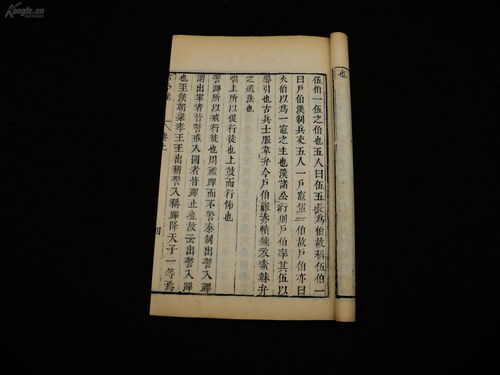 也
伍伯一伍之伯也五人曰伍五長爲伯故稱伍伯一
曰戶伯漢制兵吏五人一戶竈置一伯故戶伯亦曰
火伯以爲一竈之主也漢諸公行則戶伯率其伍以
導引也古兵士服韋弁今戶伯服赤幘纁衣素韎弁
之遺法也
唱上所以促行徒也上鼓而行節也
警蹕所以戒行徒也周禮蹕而不警秦制出警入蹕
謂出軍者皆警戒入國者皆蹕止也故云出警入蹕
也至漢朝梁孝王王出稱警入稱蹕降天子一等焉
卷上
四
Kongfz.cn